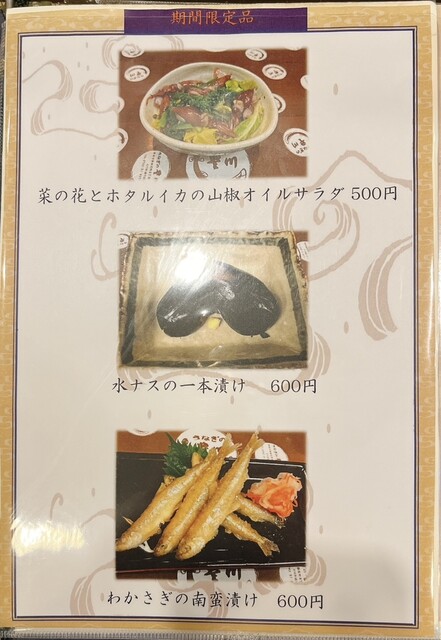 期間限定品
菜の花とホタルイカの山椒オイルサラダ 500円
水ナスの一本漬け 600円
わかさぎの南蛮漬け 600円